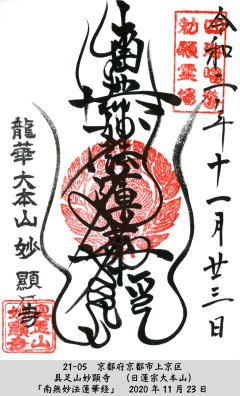 令和二年十一月廿三日
勅願霊場
南無妙法蓮華経
龍華大本山妙顯寺
21-05 京都府京都市上京区
具足山妙顕寺 (日蓮宗大本山)
「南無妙法蓮華経」 2020年11月23日